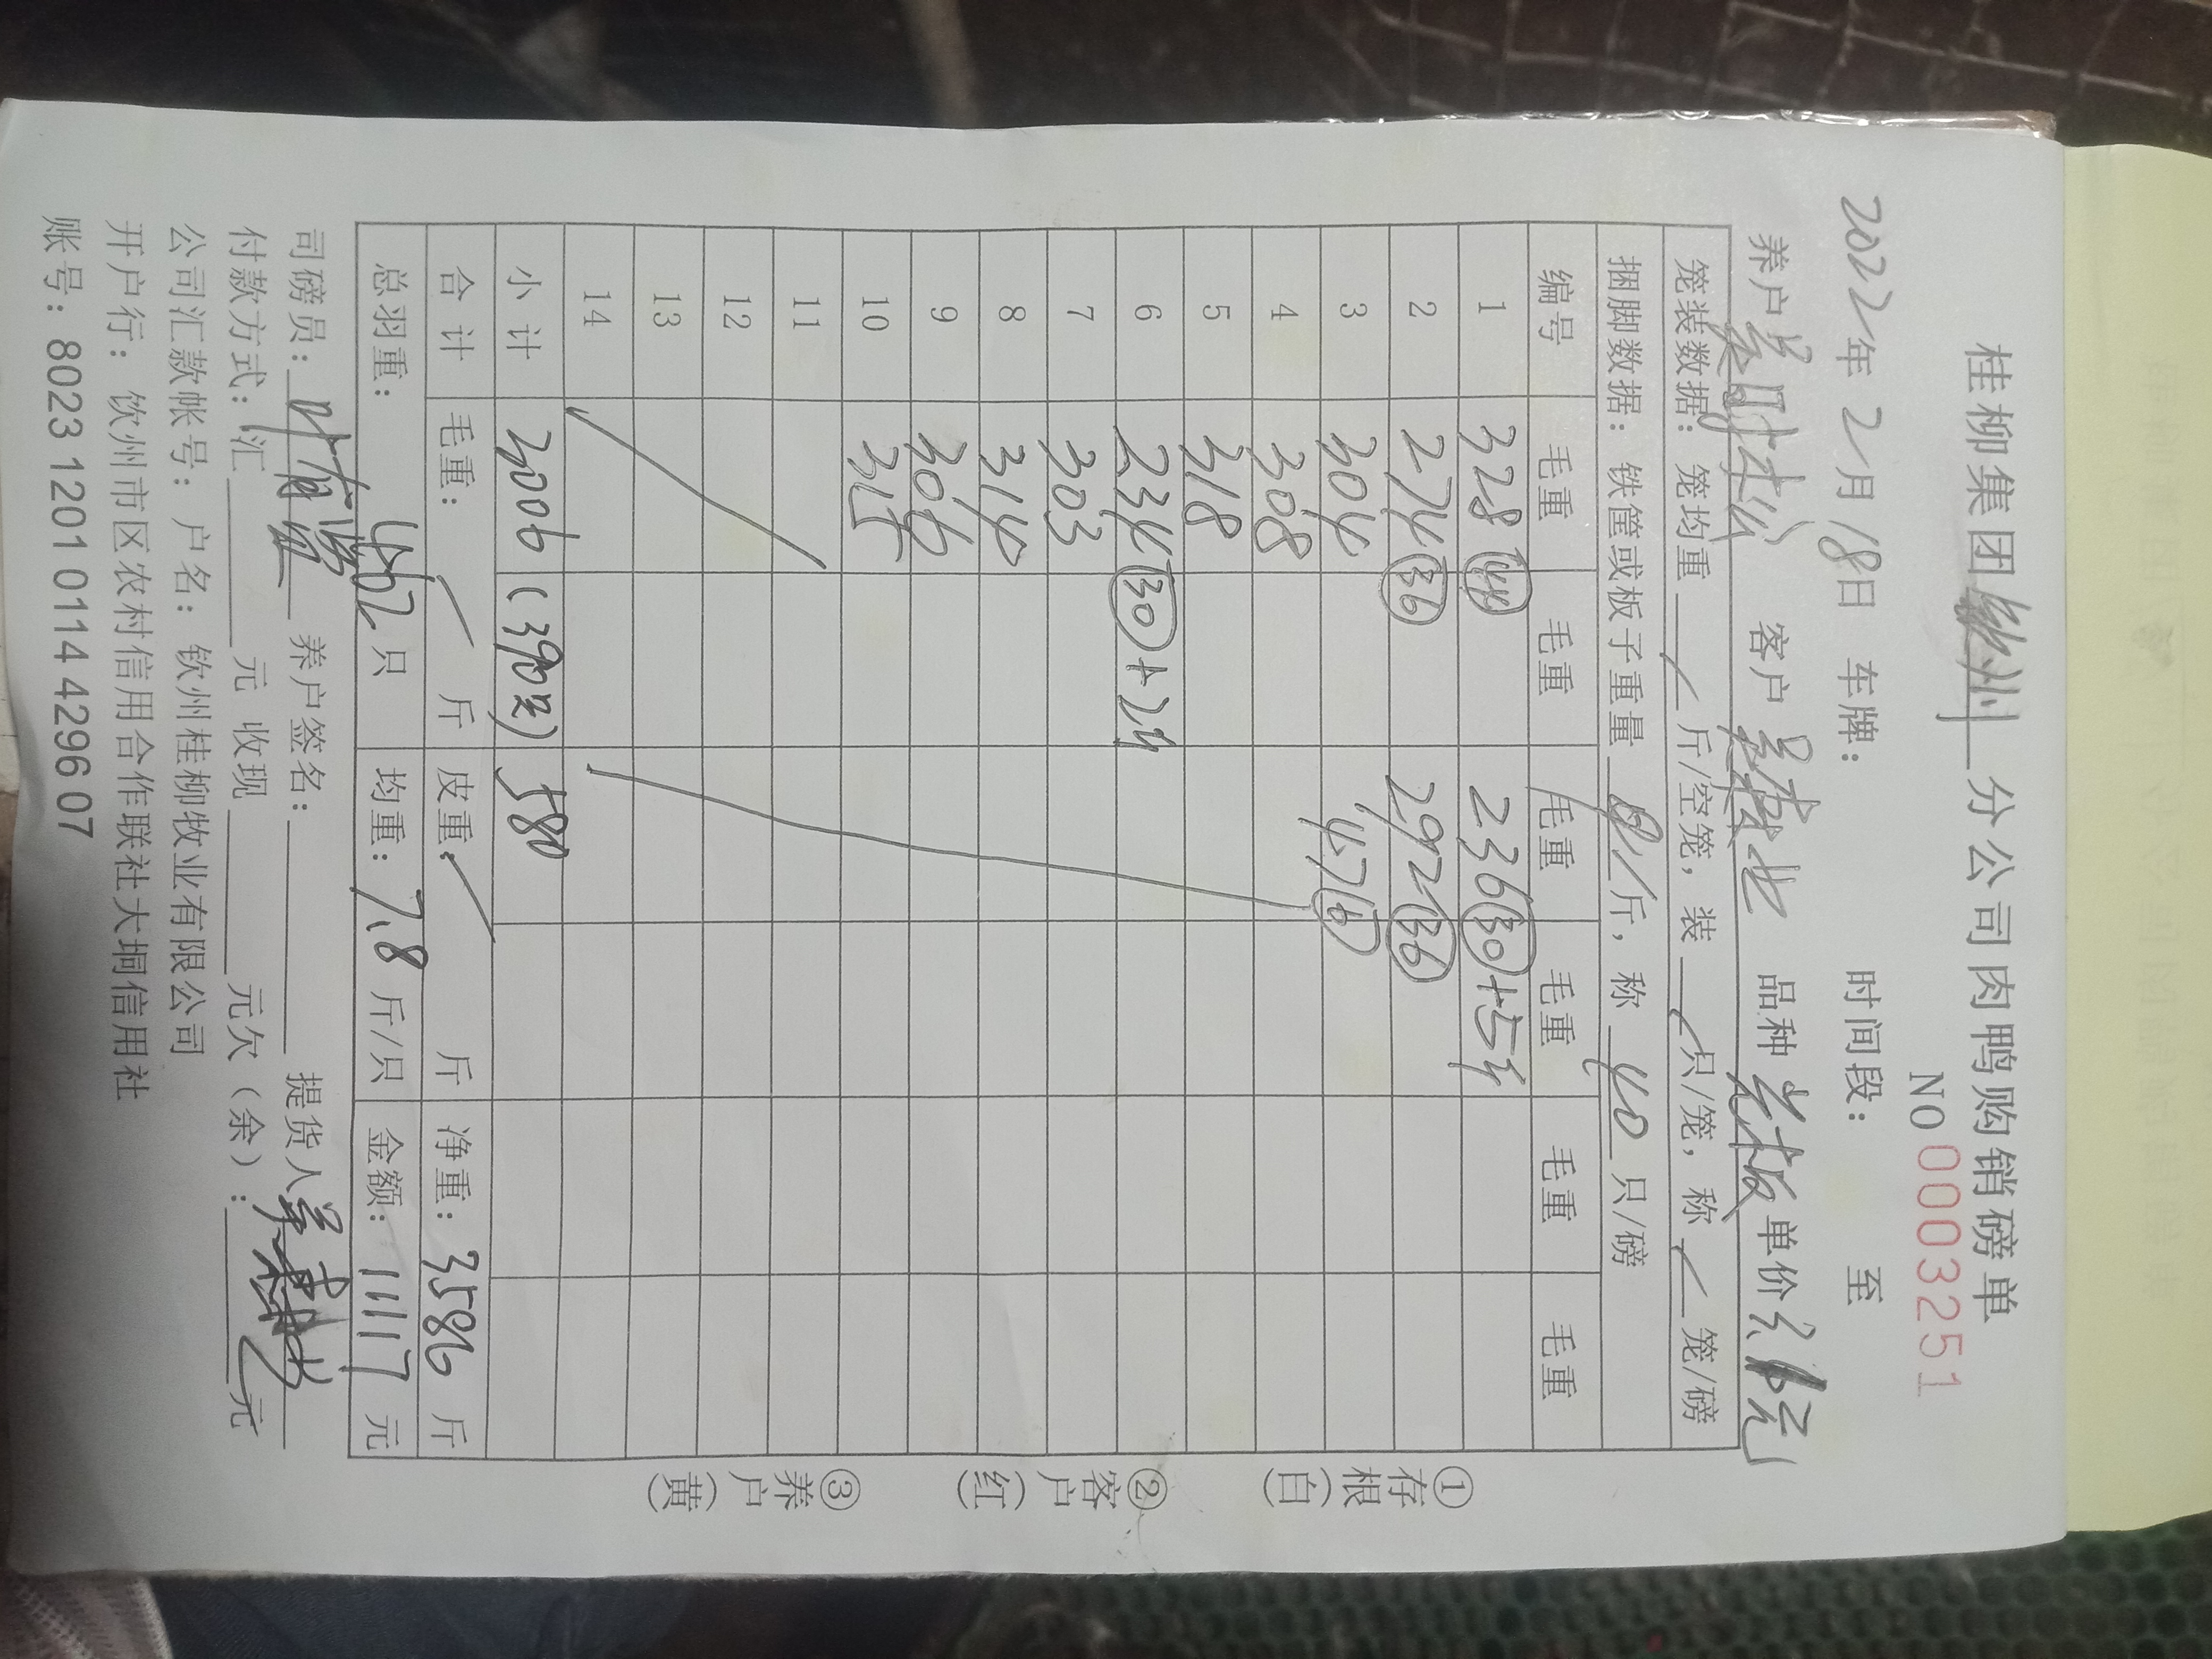 桂柳集团钦州分公司肉鸭购销磅单
NO 0003251
2022年 2月 18日 车牌: 时间段: 至
养户 客户 品种 单价
笼装数据: 笼均重 / 斤/空笼, 装 / 只/笼, 称 / 笼/磅
捆脚数据: 铁筐或板子重量 斤, 称 40 只/磅
编号 毛重 毛重 毛重 毛重 毛重 毛重
1 328 (44) 236 (30)
2 274 (36) 292 (36)
3 304 47 (6)
4 308
5 318
6 234 (30)+24
7 303
8 314
9 306
10 315
11
12
13
14
小计 3006 (390只) 580
合计 毛重: / 斤 皮重: / 斤 净重: 3586 斤
总羽重: 462 只 均重: 7.8 斤/只 金额: 11117 元
司磅员: 养户签名: 提货人
付款方式: 汇 元 收现 元欠(余): 元
公司汇款帐号: 户名: 钦州桂柳牧业有限公司
开户行: 钦州市区农村信用合作联社大垌信用社
账号: 8023 1201 0114 4296 07
①存根(白)
②客户(红)
③养户(黄)